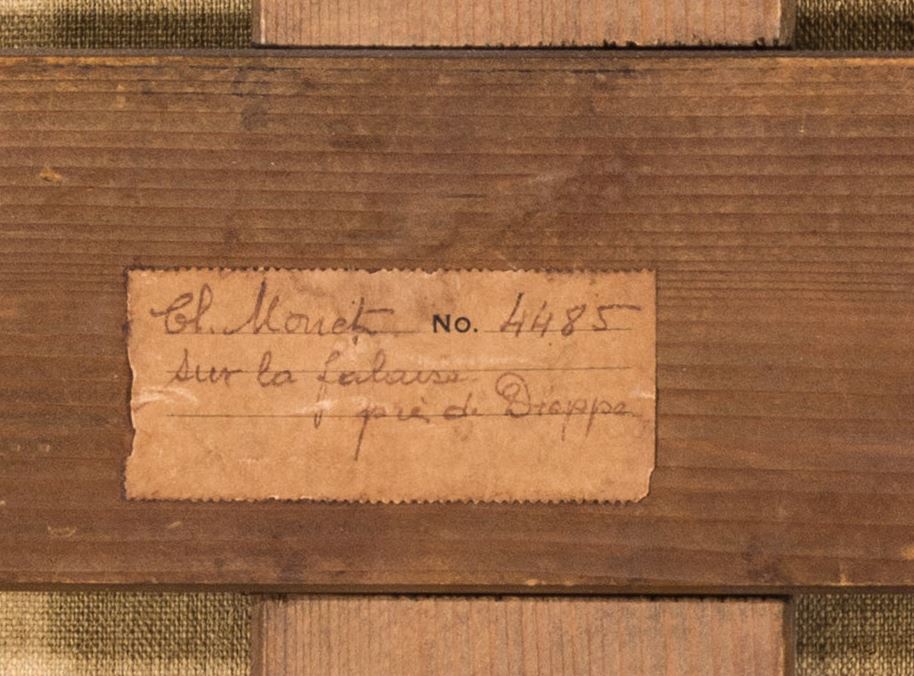 Cl. Monet No. 4485
Sur la falaise
près de Dieppe